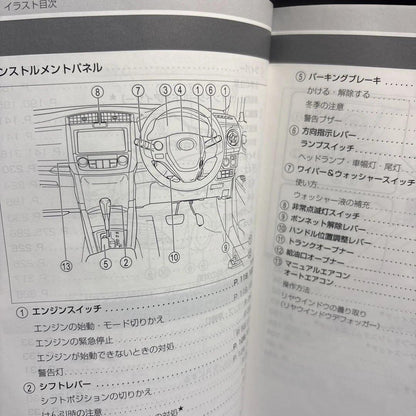 イラスト目次
ンストルメントパネル
⑧
⑦ ③ ④ ① ⑥ ①
⑬ ⑤ ② ⑩ ⑨
① エンジンスイッチ
エンジンの始動・モード切りかえ
エンジンの緊急停止
エンジンが始動できないときの対処
警告灯
② シフトレバー
シフトポジションの切りかえ
けん引時の注意
⑤ パーキングブレーキ
かける・解除する
冬季の注意
警告ブザー
⑥ 方向指示レバー
ランプスイッチ
ヘッドランプ・車幅灯・尾灯
⑦ ワイパー&ウォッシャースイッチ
使い方
ウォッシャー液の補充
⑧ 非常点滅灯スイッチ
⑨ ボンネット解除レバー
⑩ ハンドル位置調整レバー
⑪ トランクオープナー
⑫ 給油口オープナー
⑬ マニュアルエアコン
オートエアコン
操作方法
リヤウインドウの曇り取り
(リヤウインドウデフォッガー)